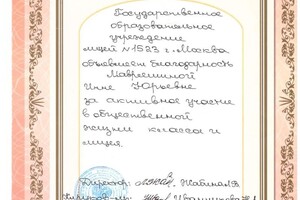 Государственное
образовательное
учреждение
лицей №1523 г. Москва
объявляет благодарность
Маврешиной
Инне Юрьевне
за активное участие
в общественной
жизни класса и
лицея.
Директор: